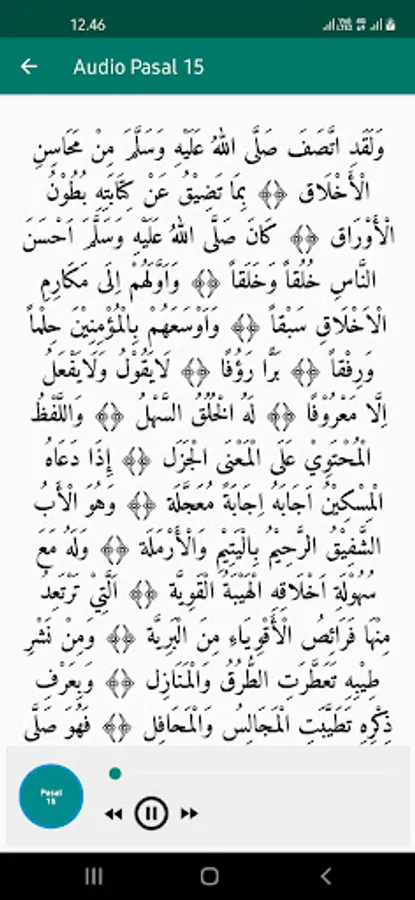 12.46
Audio Pasal 15
وَلَقَدِ اتَّصَفَ صَلَّى اللهُ عَلَيْهِ وَسَلَّمَ مِنْ مَحَاسِنِ
الْأَخْلَاقِ ﴿﴾ بِمَا تَضِيْقُ عَنْ كِتَابَتِهِ بُطُوْنُ
الْأَوْرَاقِ ﴿﴾ كَانَ صَلَّى اللهُ عَلَيْهِ وَسَلَّمَ اَحْسَنَ
النَّاسِ خُلُقاً وَخَلَقاً ﴿﴾ وَاَوَّلَهُمْ اِلَى مَكَارِمِ
الْاَخْلَاقِ سَبْقاً ﴿﴾ وَاَوْسَعَهُمْ بِالْمُؤْمِنِيْنَ حِلْماً
وَرِفْقاً ﴿﴾ بَرًّا رَؤُفًا ﴿﴾ لَايَقُوْلُ وَلَايَفْعَلُ
اِلَّا مَعْرُوْفًا ﴿﴾ لَهُ الْخُلُقُ السَّهْلُ ﴿﴾ وَاللَّفْظُ
الْمُحْتَوِيْ عَلَى الْمَعْنَى الْجَزَلِ ﴿﴾ إِذَا دَعَاهُ
الْمِسْكِيْنُ اَجَابَهُ اِجَابَةً مُعَجَّلَة ﴿﴾ وَهُوَ الْأَبُ
الشَّفِيْقُ الرَّحِيْمُ بِالْيَتِيْمِ وَالْأَرْمَلَة ﴿﴾ وَلَهُ مَعَ
سُهُوْلَةِ اَخْلَاقِهِ الْهَيْبَةُ الْقَوِيَّة ﴿﴾ اَلَّتِيْ تَرْتَعِدُ
مِنْهَا فَرَائِصُ الْأَقْوِيَاءِ مِنَ الْبَرِيَّة ﴿﴾ وَمِنْ نَشْرِ
طِيْبِهِ تَعَطَّرَت الطُّرُقُ وَالْمَنَازِل ﴿﴾ وَبِعَرْفِ
ذِكْرِهِ تَطَيَّبَتِ الْمَجَالِسُ وَالْمَحَافِل ﴿﴾ فَهُوَ صَلَّى
Pasal
15